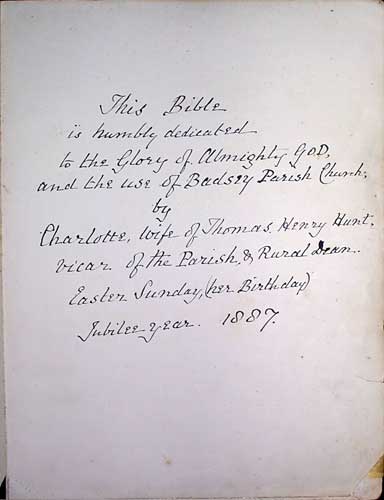 This Bible
is humbly dedicated
to the Glory of Almighty GOD,
and the use of Badsey Parish Church,
by
Charlotte, wife of Thomas Henry Hunt,
vicar of the Parish, & Rural Dean.
Easter Sunday, (her Birthday)
Jubilee year. 1887.